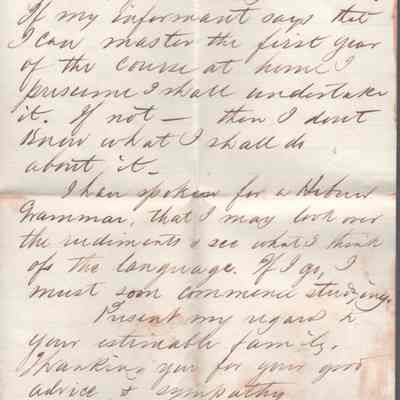 If my informant says that
I can master the first year
of the course at home I
presume I shall undertake
it. If not — then I don't
know what I shall do
about it —
I have spoken for a Hebrew
Grammar, that I may look over
the rudiments & see what I think
of the language. If I go, I
must soon commence studying.
Present my regard to
your estimable family.
Thanking you for your good
advice & sympathy